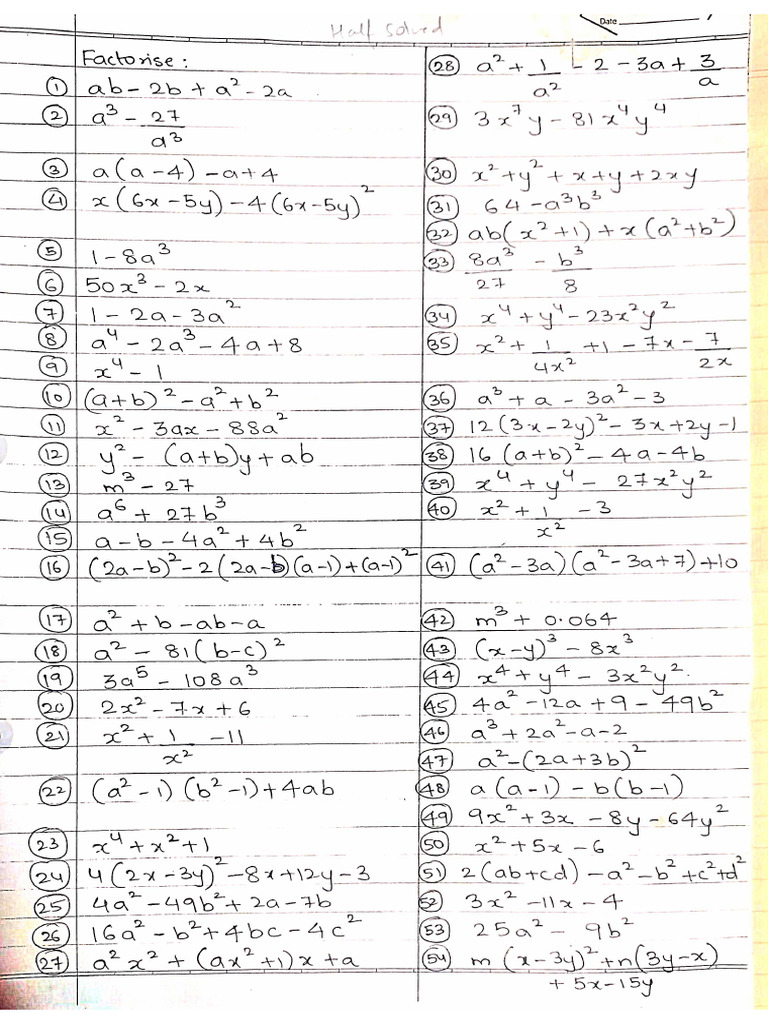 Half Solved
Date
Factorise :
① ab - 2b + a² - 2a
② a³ - 27/a³
③ a(a-4) - a + 4
④ x(6x - 5y) - 4(6x - 5y)²
⑤ 1 - 8a³
⑥ 50x³ - 2x
⑦ 1 - 2a - 3a²
⑧ a⁴ - 2a³ - 4a + 8
⑨ x⁴ - 1
⑩ (a+b)² - a² + b²
⑪ x² - 3ax - 88a²
⑫ y² - (a+b)y + ab
⑬ m³ - 27
⑭ a⁶ + 27b³
⑮ a - b - 4a² + 4b²
⑯ (2a-b)² - 2(2a-b)(a-1) + (a-1)²
⑰ a² + b - ab - a
⑱ a² - 81(b-c)²
⑲ 3a⁵ - 108a³
⑳ 2x² - 7x + 6
㉑ x² + 1/x² - 11
㉒ (a²-1)(b²-1) + 4ab
㉓ x⁴ + x² + 1
㉔ 4(2x-3y)² - 8x + 12y - 3
㉕ 4a² - 49b² + 2a - 7b
㉖ 16a² - b² + 4bc - 4c²
㉗ a²x² + (ax²+1)x + a
㉘ a² + 1/a² - 2 - 3a + 3/a
㉙ 3x⁷y - 81x⁴y⁴
㉚ x² + y² + x + y + 2xy
㉛ 64 - a³b³
㉜ ab(x²+1) + x(a²+b²)
㉝ 8a³/27 - b³/8
㉞ x⁴ + y⁴ - 23x²y²
㉟ x² + 1/4x² + 1 - 7x - 7/2x
㊱ a³ + a - 3a² - 3
㊲ 12(3x-2y)² - 3x + 2y - 1
㊳ 16(a+b)² - 4a - 4b
㊴ x⁴ + y⁴ - 27x²y²
㊵ x² + 1/x² - 3
㊶ (a²-3a)(a²-3a+7) + 10
㊷ m³ + 0.064
㊸ (x-y)³ - 8x³
㊹ x⁴ + y⁴ - 3x²y²
㊺ 4a² - 12a + 9 - 49b²
㊻ a³ + 2a² - a - 2
㊼ a² - (2a+3b)²
㊽ a(a-1) - b(b-1)
㊾ 9x² + 3x - 8y - 64y²
㊿ x² + 5x - 6
51 2(ab+cd) - a² - b² + c² + d²
52 3x² - 11x - 4
53 25a² - 9b²
54 m(x-3y)² + n(3y-x)
+ 5x - 15y